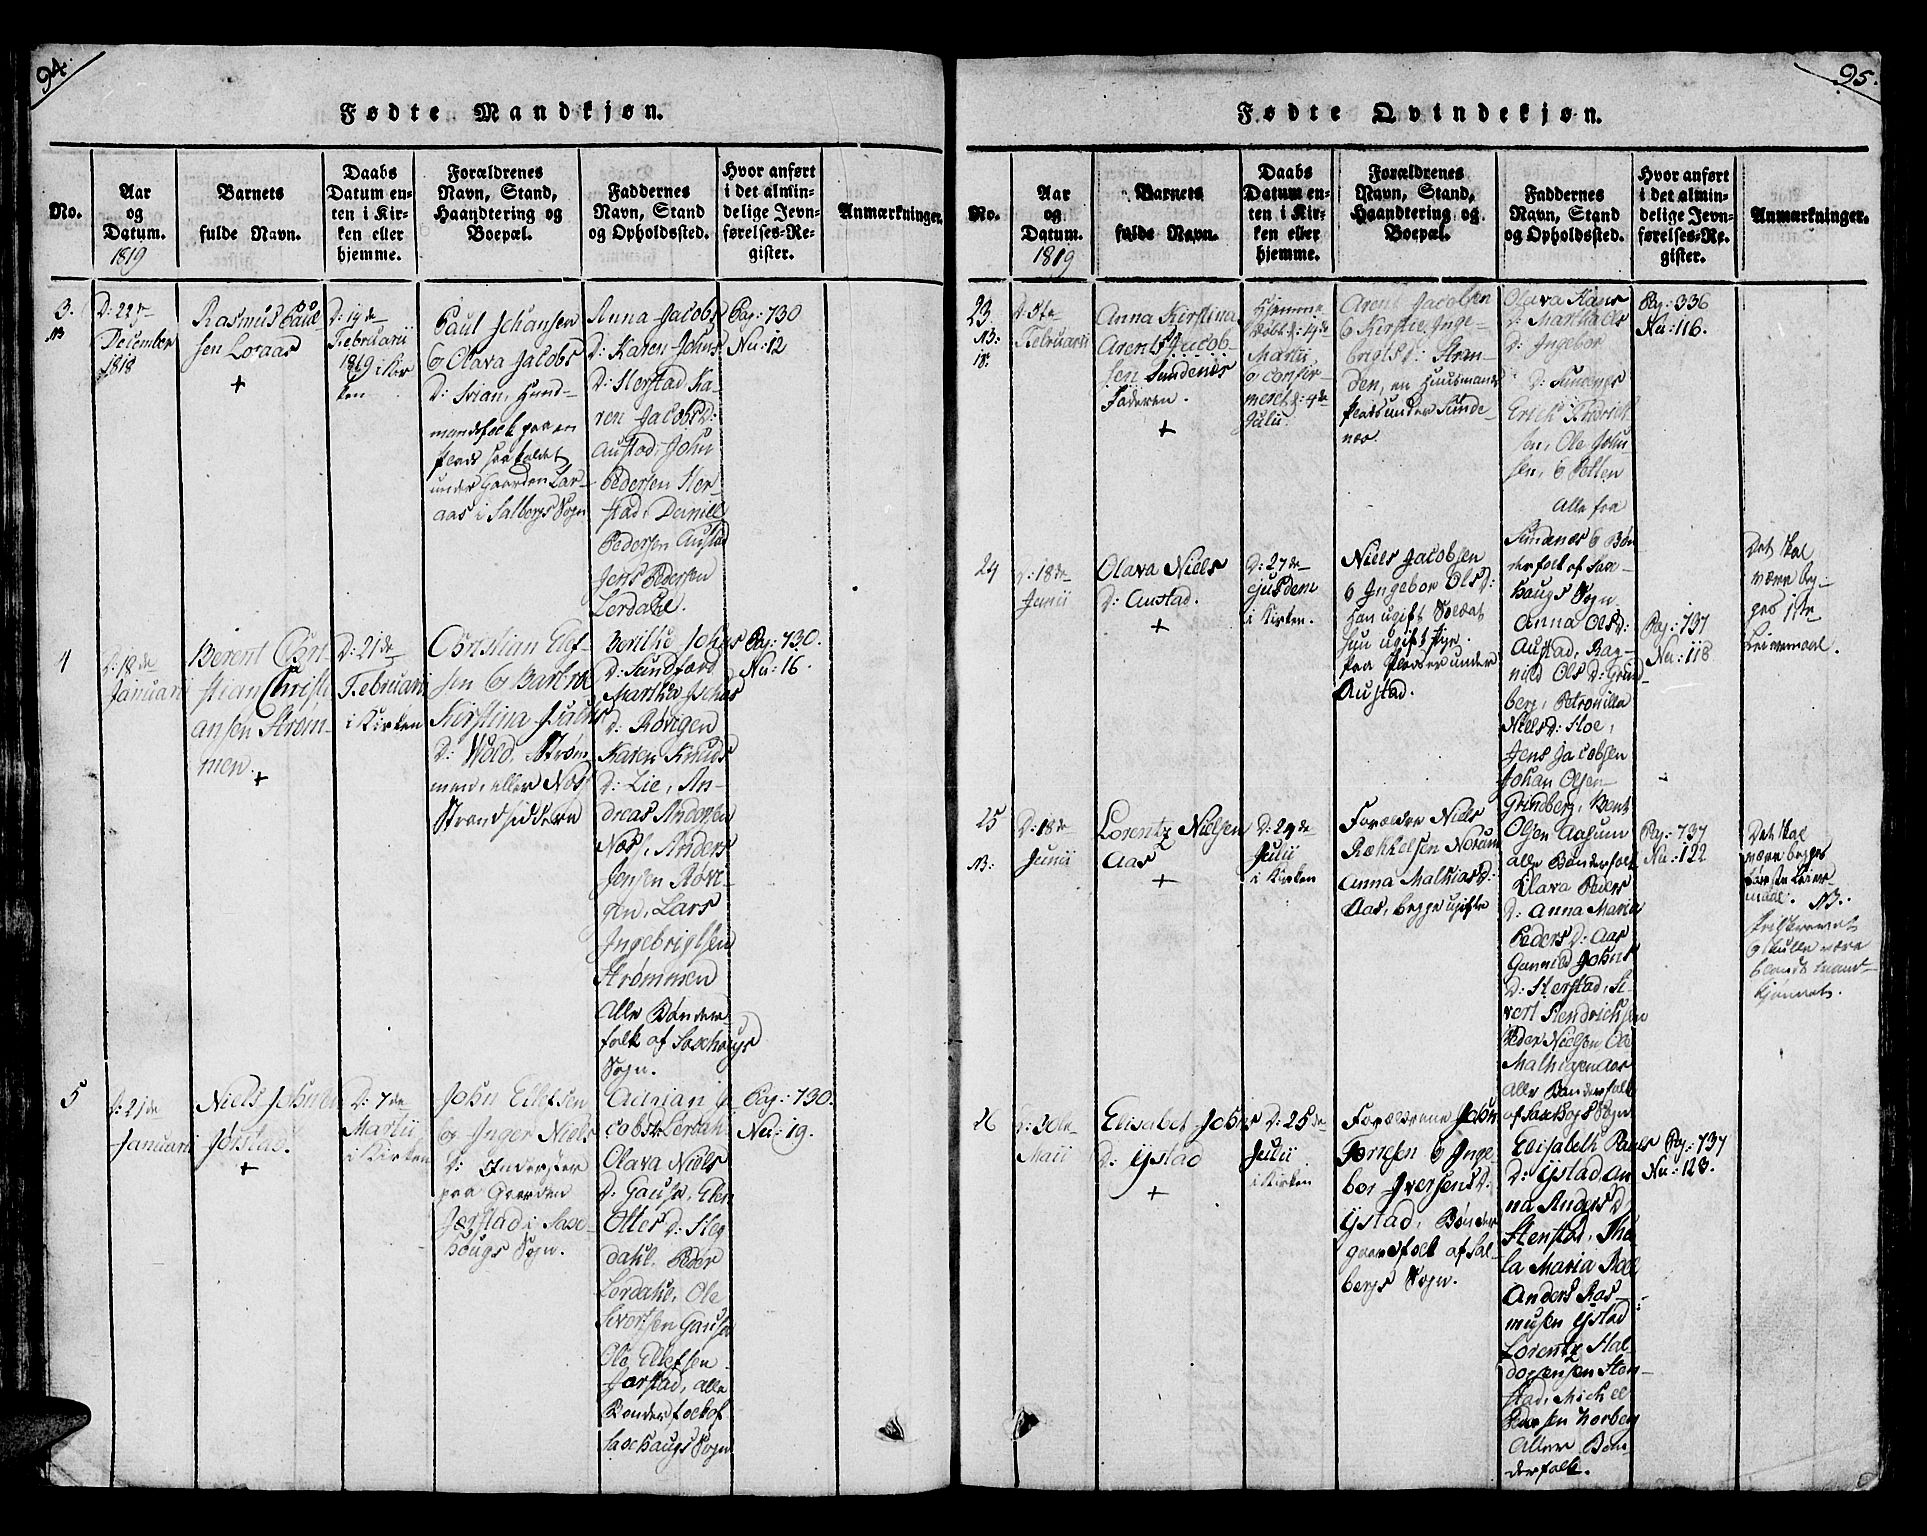 94.
Fødte Mandkjøn.
No.
Aar
og
Datum.
1819
Barnets
fulde Navn.
Daabs
Datum en-
ten i Kir-
ken eller
hjemme.
Forældrenes
Navn, Stand,
Haandtering og
Boepæl.
Faddernes
Navn, Stand
og Opholdssted.
Hvor anført
i det almin-
delige Jevn-
førelses-Re-
gister.
Anmærkninger.
3.
D: 22
December
1818
Rasmus Paul
sen Loraas
+
D: 14de
Februarii
1819 i Kir
ken
Paul Johansen
& Olava Jacobs
D: Svian, Huus-
mandsfolk paa en
Plads
under Gaarden Lor-
aas i Salbergs Sogn
Anna Jacobs
D: Karen Johns
D: Herstad Ka-
ren Jacobs D:
Austad, John
Pedersen Her-
stad, Daniel
Pedersen Austad
Jens Pedersen
Lerdahl.
Pag: 730
Nu: 12
4
D: 18de
Januarii
Berent Chri-
stian Christi
ansen Strøm-
men.
+
D: 21de
Februarii
i Kirken
Christian Elef-
sen & Barbroe
Kirstina
D: Wold, Strøm-
men, eller Næs
Strandsiddere
Berithe Johns
D: Sundfærd
Martha Johns
D: Røvigen
Karen Knuds
D: Lie, An-
dreas Andersen
Næss, Anders
Jensen Røvi-
gen, Lars
Ingebrigtsen
Strømmen
Alle Bønder-
folk af Saxhaugs
Sogn.
Pag: 730.
Nu: 16.
5
D: 21de
Januarii
Niels Johnsen
Jørstad.
+
D: 7de
Martii
i Kirken
John Ellefsen
og Inger Niels
D: Inderster
paa Gaarden
Jørstad i Saxe-
haugs Sogn.
Adrian J
cobs Lerdahl
Olava Niels
D: Gausen, Elen
Otters D: Heg
dahl, Peder
Lerdahl, Ole
Sivertsen Gausen
Ole Ellefsen
Jørstad, alle
Bønderfolk af
Saxehaugs Sogn
Pag: 730.
Nu: 19.
95.
Fødte Qvindekjøn.
No.
Aar
og
Datum.
1819
Barnets
fulde Navn.
Daabs
Datum en-
ten i Kir-
ken eller
hjemme.
Forældrenes
Navn, Stand,
Haandtering og
Boepæl.
Faddernes
Navn, Stand
og Opholdssted.
Hvor anført
i det almin-
delige Jevn-
førelses-Re-
gister.
Anmærkninger.
23.
Februarii
Anna Kirstina
Arents Jacob-
sen Sundnæs
Faderen.
+
Hjemme
døbt d: 4de
Martii
& confir-
meret d: 4de
Julii
Arent Jacobsen
& Kirstie Inge-
brigts D: Stran-
den, en Huusmands
Plads under Sunde-
næs.
Olava Hans
D: Martha Ols
D: Ingebor
D: Sundnæs
Erich Hendrich
sen, Ole John
sen, & Petten
Alle fra
Sundnæs & Bøn
derfolk af Saxe-
haugs Sogn
Pag: 336
Nu: 116.
24
D: 18de
Junii
Olava Niels
D: Austad.
+
D: 27de
ejusdem
i Kirken.
Niels Jacobsen
& Ingebor Ols D:
Han ugift Soldat
hun ugift Pige
paa Pladser under
Austad.
Anna Ols D:
Austad, Rag-
nild Ols D: Grun-
berg, Petronilla
Niels D: Hoe,
Jens Jacobsen
Johan Olsen
Grundberg, Bent
Olsen Aasum
alle Bønderfolk
Pag: 737
Nu: 118
Det skal
være beg-
ges 1ste
Leiermaal.
25
NB:
D: 18de
Junii
Lorentz Nielsen
Aas
+
D: 24de
Julii
i Kirken
Forældre Niels
Rækkelsen Noraun
Anna Mathias D:
Aas, begge ugifte
Olava Peders
D: Anna Maria
Peders D: Aas
Gunnild Johns
D: Herstad, Si-
vert Hendrichsen
Peder Nielsen
Mathisen Aas
alle Bønderfolk
af Saxhougs Sogn
Pag: 737
Nu: 122
Det skal
være begges
første Leier-
maal. NB.
& skulle være
blandt Mand-
kjønnet.
26
D: 30te
Maii
Elisabet Johns
D: Ystad
+
D: 25de
Julii
i Kirken
Forældrene John
Tørrisen & Inge
bor Iversens D:
Ystad, Bønder
gaardfolk af Sal-
bergs Sogn.
Elisabeth Pauls
D: Ystad, An
na Anders D:
Stenstad,
la Maria
Anders Ras-
musen Ystad
Lorentz Hal-
dorsensen Sten-
stad, Michel
Pedersen Norberg
Alle Bøn-
derfolk.
Pag: 737
Nu: 123.